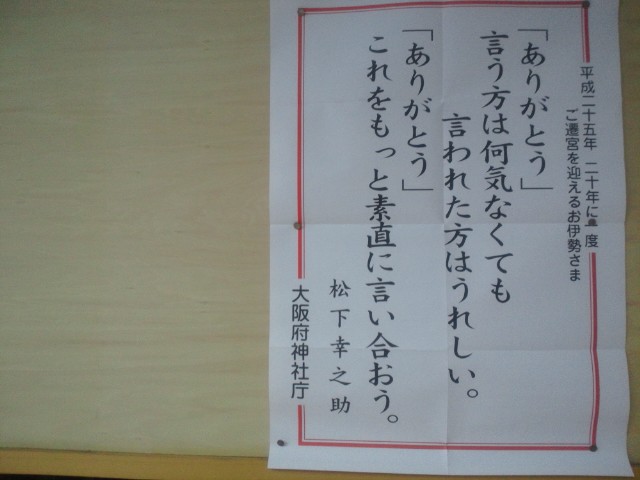 平成二十五年 二十年に一度
ご遷宮を迎えるお伊勢さま
「ありがとう」
言う方は何気なくても
言われた方はうれしい。
「ありがとう」
これをもっと素直に言い合おう。
松下幸之助
大阪府神社庁